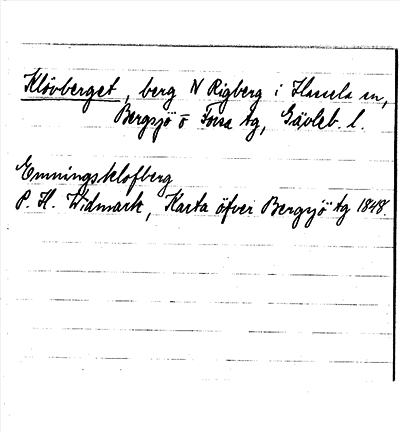 Klövberget, berg N Rigberg i Hassela sn,
Bergsjö o Forsa tg, Gävleb. l.
Enningsklofberg
P. H. Widmark, Karta öfver Bergsjö tg 1848.